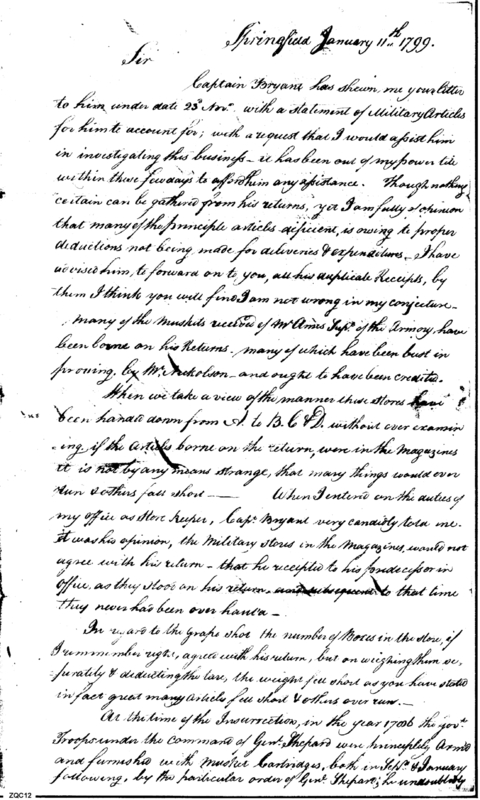 Springfield January 11th 1799.
Sir
Captain Bryant has shewn me your letter
to him under date 23d Novr. with a statement of Military Articles
for him to account for; with a request that I would assist him
in investigating this business – it has been out of my power till
within these few days to afford him any assistance. Though nothing
certain can be gathered from his returns, yet I am fully of opinion
that many of the principle articles deficient, is owing to proper
deductions not being made for deliveries & expenditures. I have
advised him, to forward on to you, all his duplicate Receipts, by
them I think you will find I am not wrong in my conjecture.
Many of the Muskets received of Mr Ames Supt. of the Armory, have
been borne on his Returns. many of which have been bust in
proving, by Mr. Nicholson – and ought to have been credited.
When we take a view of the manner these Stores have
been handed down from A. to B. C & D. without ever examin
ing, if the Articles borne on the return, were in the Magazines
it is not by any means strange, that many things would over
run & others fall short – When I entered on the duties of
my office as Store keeper, Capt. Bryant very candidly told me
it was his opinion, the Military Stores in the Magazines, would not
agree with his return – that he receipted to his predecessor in
office, as they stood on his return, and subsequent to that time
they never had been over hauled –
In regard to the Grape Shot the number of Boxes in the Store, if
I rememember right, agree with his return, but on weighing them se
parately & deducting the tare, the weight fell short as you have stated
in fact great many Articles fell short & others over run. –
At the time of the Insurrection, in the year 1786 the govt.
Troops under the command of Genl. Shepard were principly Armed
and furnished with Musket Cartridges, both in Sept. & January
following, by the particular order of Genl. Shepard; he undoubtedly
ZQC12